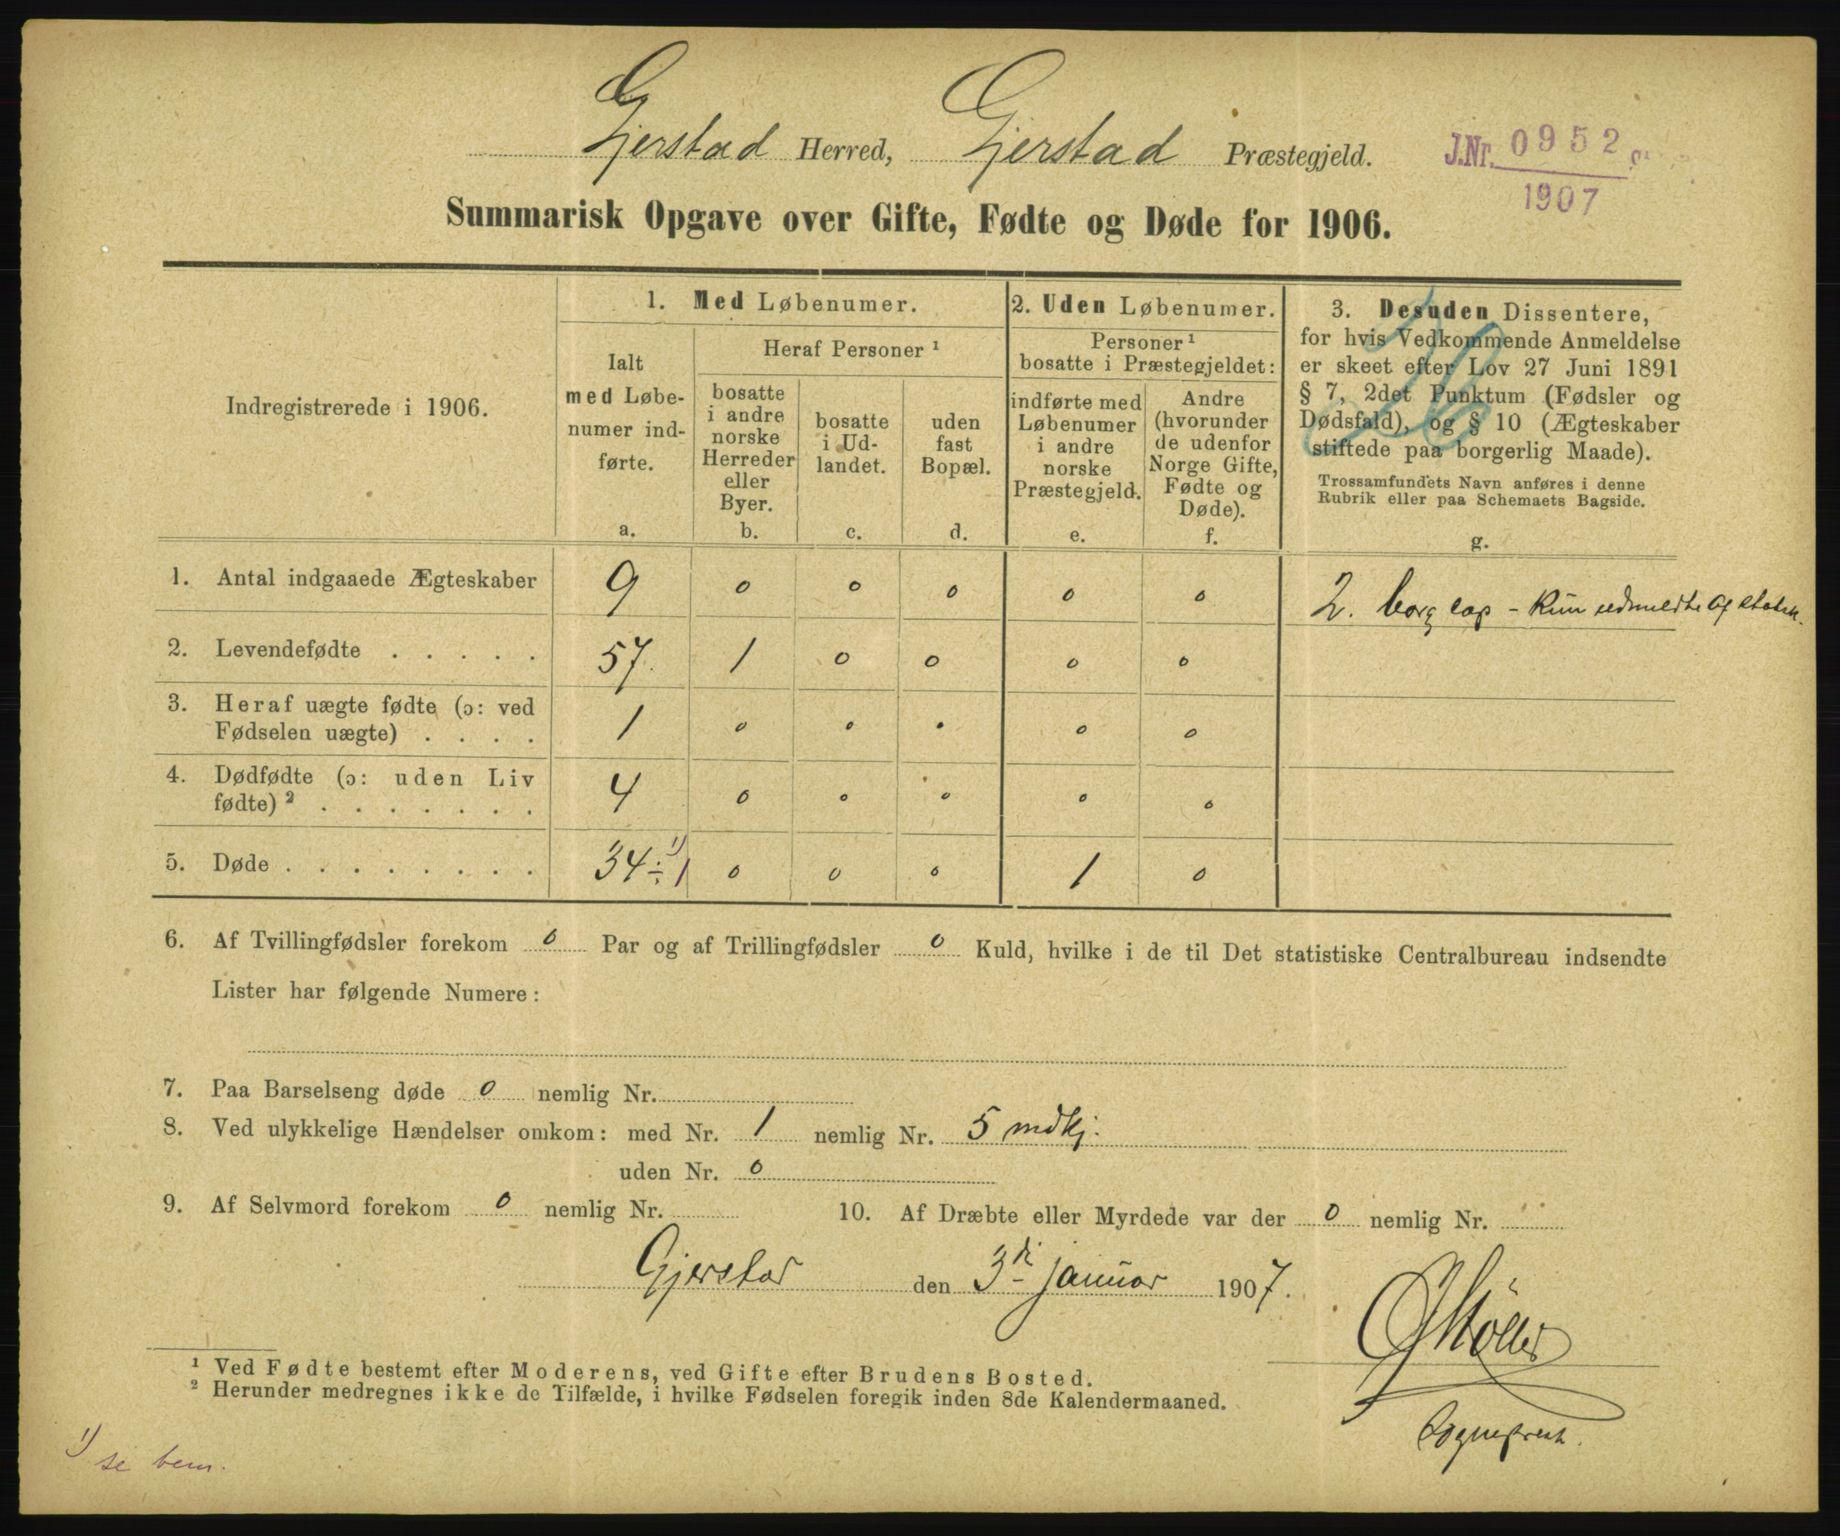 Gjerstad Herred, Gjerstad Præstegjeld.
J.Nr. 0952
1907
Summarisk Opgave over Gifte, Fødte og Døde for 1906.
Indregistrerede i 1906.
1. Med Løbenumer.
Ialt
med Løbe-
numer ind-
førte.
a.
Heraf Personer ¹
bosatte
i andre
norske
Herreder
eller
Byer.
b.
bosatte
i Ud-
landet.
c.
uden
fast
Bopæl.
d.
2. Uden Løbenumer.
Personer ¹
bosatte i Præstegjeldet:
indførte med
Løbenumer
i andre
norske
Præstegjeld.
e.
Andre
(hvorunder
de udenfor
Norge Gifte,
Fødte og
Døde).
f.
3. Desuden Dissentere,
for hvis Vedkommende Anmeldelse
er skeet efter Lov 27 Juni 1891
§ 7, 2det Punktum (Fødsler og
Dødsfald), og § 10 (Ægteskaber
stiftede paa borgerlig Maade).
Trossamfundets Navn anføres i denne
Rubrik eller paa Schemaets Bagside.
g.
1. Antal indgaaede Ægteskaber 9 0 0 0 0 0 2. borg cap - Kun udmeldte af
2. Levendefødte . . . . . 57. 1 0 0 0 0
3. Heraf uægte fødte (ɔ: ved
Fødselen uægte) . . . . 1 0 0 0 0 0
4. Dødfødte (ɔ: uden Liv
fødte) ² . . . . . . . 4 0 0 0 0 0
5. Døde . . . . . . . . 34 ÷ 1 ¹⁾ 0 0 0 1 0
6. Af Tvillingfødsler forekom 0 Par og af Trillingfødsler 0 Kuld, hvilke i de til Det statistiske Centralbureau indsendte
Lister har følgende Numere:
7. Paa Barselseng døde 0 nemlig Nr.
8. Ved ulykkelige Hændelser omkom: med Nr. 1 nemlig Nr. 5 mdkj.
uden Nr. 0
9. Af Selvmord forekom 0 nemlig Nr. 10. Af Dræbte eller Myrdede var der 0 nemlig Nr.
Gjerstad den 3di januar 1907.
Møller
Sognepræst.
¹ Ved Fødte bestemt efter Moderens, ved Gifte efter Brudens Bosted.
² Herunder medregnes ikke de Tilfælde, i hvilke Fødselen foregik inden 8de Kalendermaaned.
¹⁾ se bem.